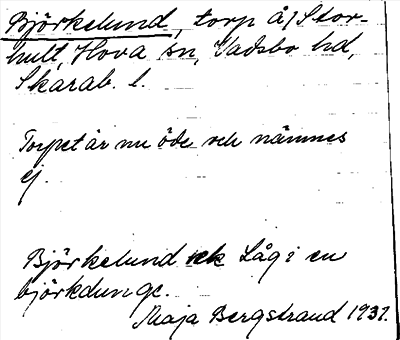 Björkelund, torp å/ Stor-
hult, Hova sn, Vadsbo hd,
Skarab. l.
Torpet är nu öde och nämnes
ej.
Björkelund låg i en
björkdunge.
Maja Bergstrand 1931.